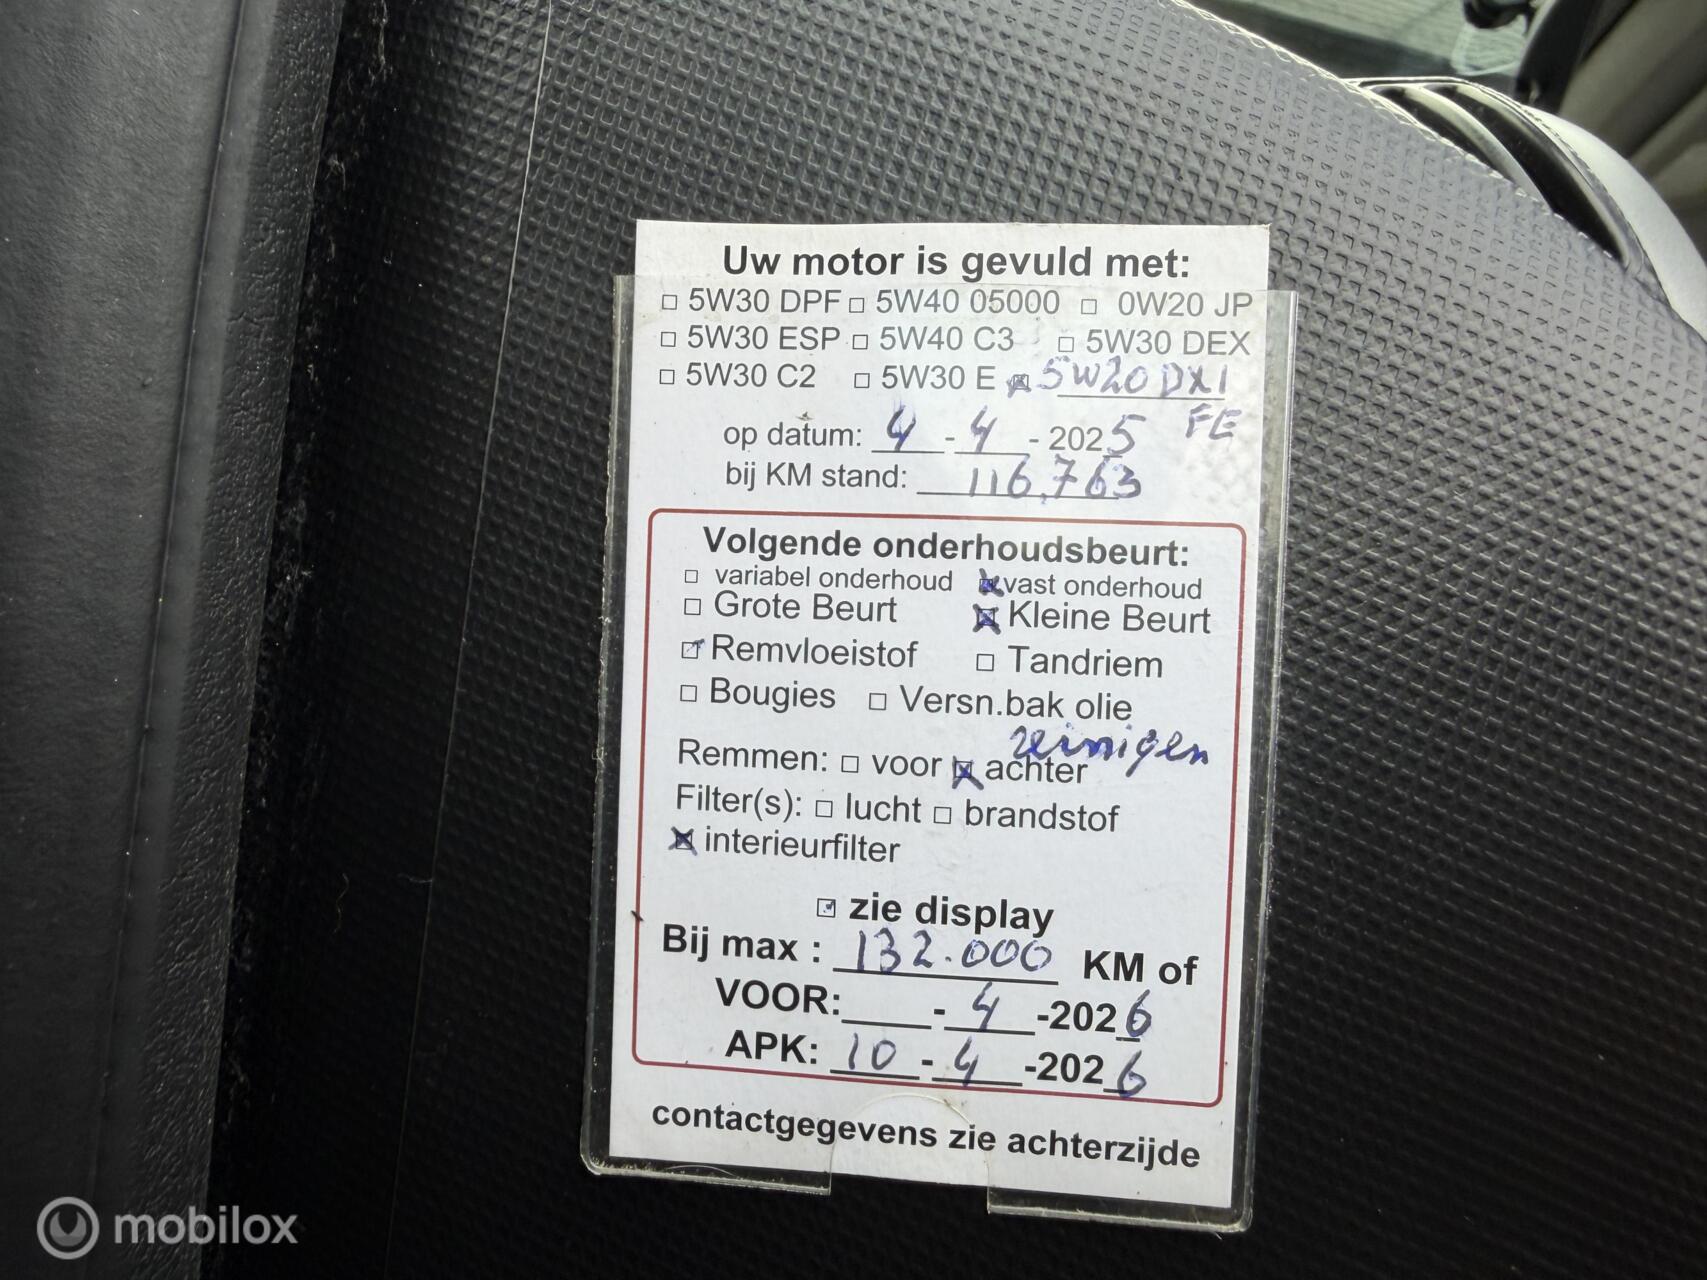 Uw motor is gevuld met:
□ 5W30 DPF □ 5W40 05000 □ 0W20 JP
□ 5W30 ESP □ 5W40 C3 □ 5W30 DEX
□ 5W30 C2 □ 5W30 E ☒ 5W20 DX1
FE
op datum: 4 - 4 - 2025
bij KM stand: 116.763
Volgende onderhoudsbeurt:
□ variabel onderhoud ☒ vast onderhoud
□ Grote Beurt ☒ Kleine Beurt
☑ Remvloeistof □ Tandriem
□ Bougies □ Versn.bak olie
reinigen
Remmen: □ voor ☒ achter
Filter(s): □ lucht □ brandstof
☒ interieurfilter
☑ zie display
Bij max : 132.000 KM of
VOOR: - 4 -2026
APK: 10 - 4 -2026
contactgegevens zie achterzijde
mobilox